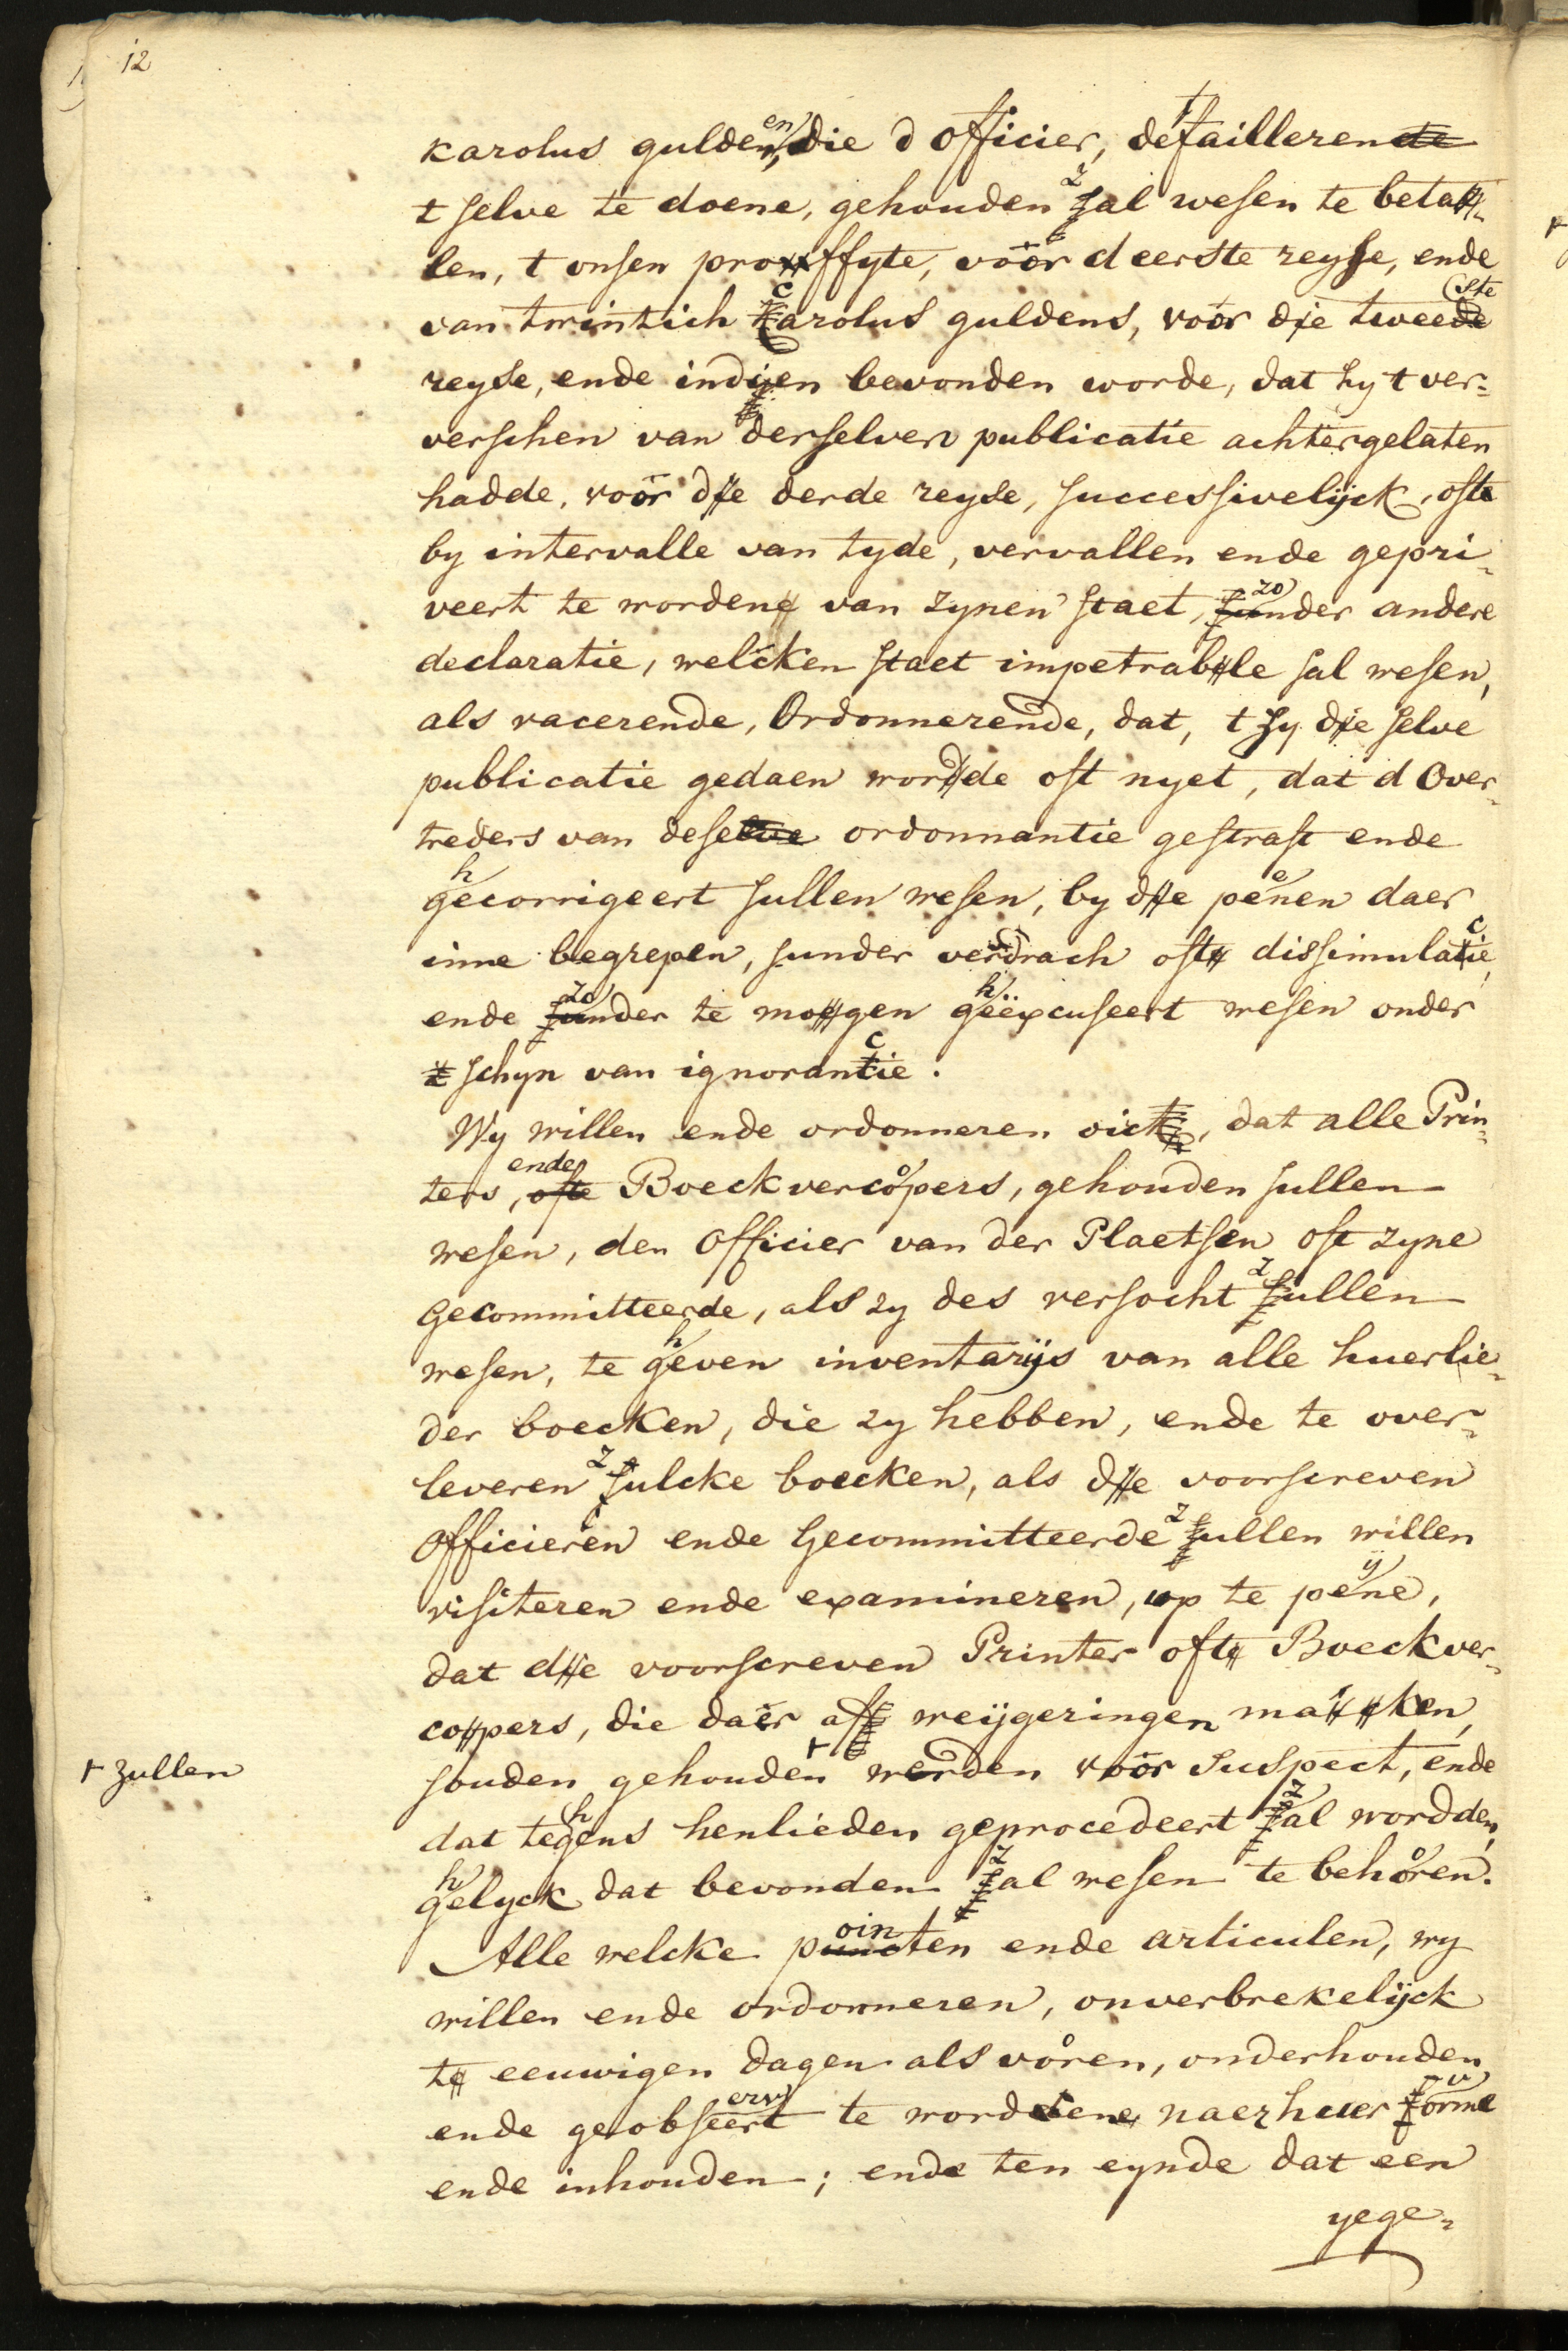 12
karolus gulden, die d officier, defailleren
t selve te doene, gehouden zal wesen te beta-
len, t onsen proffyte, voor d eerste reyse, ende
van twintich Carolus guldens, voor de tweeste
reyse, ende indien bevonden worde, dat hy t ver-
verschen van derselver publicatie achtergelaten
hadde, voor de derde reyse, successivelijck, oft
by intervalle van tyde, vervallen ende gepri-
veert te worden van zynen staet, zonder andere
declaratie, welcken staet impetrable sal wesen,
als vacerende, Ordonnerende, dat, t zy de selve
publicatie gedaen worde oft nyet, dat d Over-
treders van dese ordonnantie gestraft ende
ghecorrigeert sullen wesen, by de peenen daer
inne begrepen, sunder verdrach oft dissimulacie,
ende zonder te mogen gheëxcuseert wesen onder
schyn van ignorancie.
Wy willen ende ordonneren oick, dat alle Prin-
ters, ende Boeckvercopers, gehouden sullen
wesen, den Officier van der Plaetsen oft zyne
Gecommitteerde, als zy des versocht zullen
wesen, te gheven inventarijs van alle huerlie-
der boecken, die zy hebben, ende te over-
leveren zulcke boecken, als de voorscreven
Officieren ende Gecommitteerde zullen willen
visiteren ende examineren, op te pyne,
dat de voorscreven Printer oft Boeckver-
copers, die daer af weijgeringen maken,
souden gehouden + werden voor suspect, ende
+ zullen
dat teghens henlieden geprocedeert zal wordden,
ghelyck dat bevonden zal wesen te behoren.
Alle welcke pointen ende articulen, wy
willen ende ordonneren, onverbrekelijck
t eeuwigen dagen als voren, onderhouden
ende geobserveert te wordene naer huer vorme
ende inhouden; ende ten eynde dat een
yege-